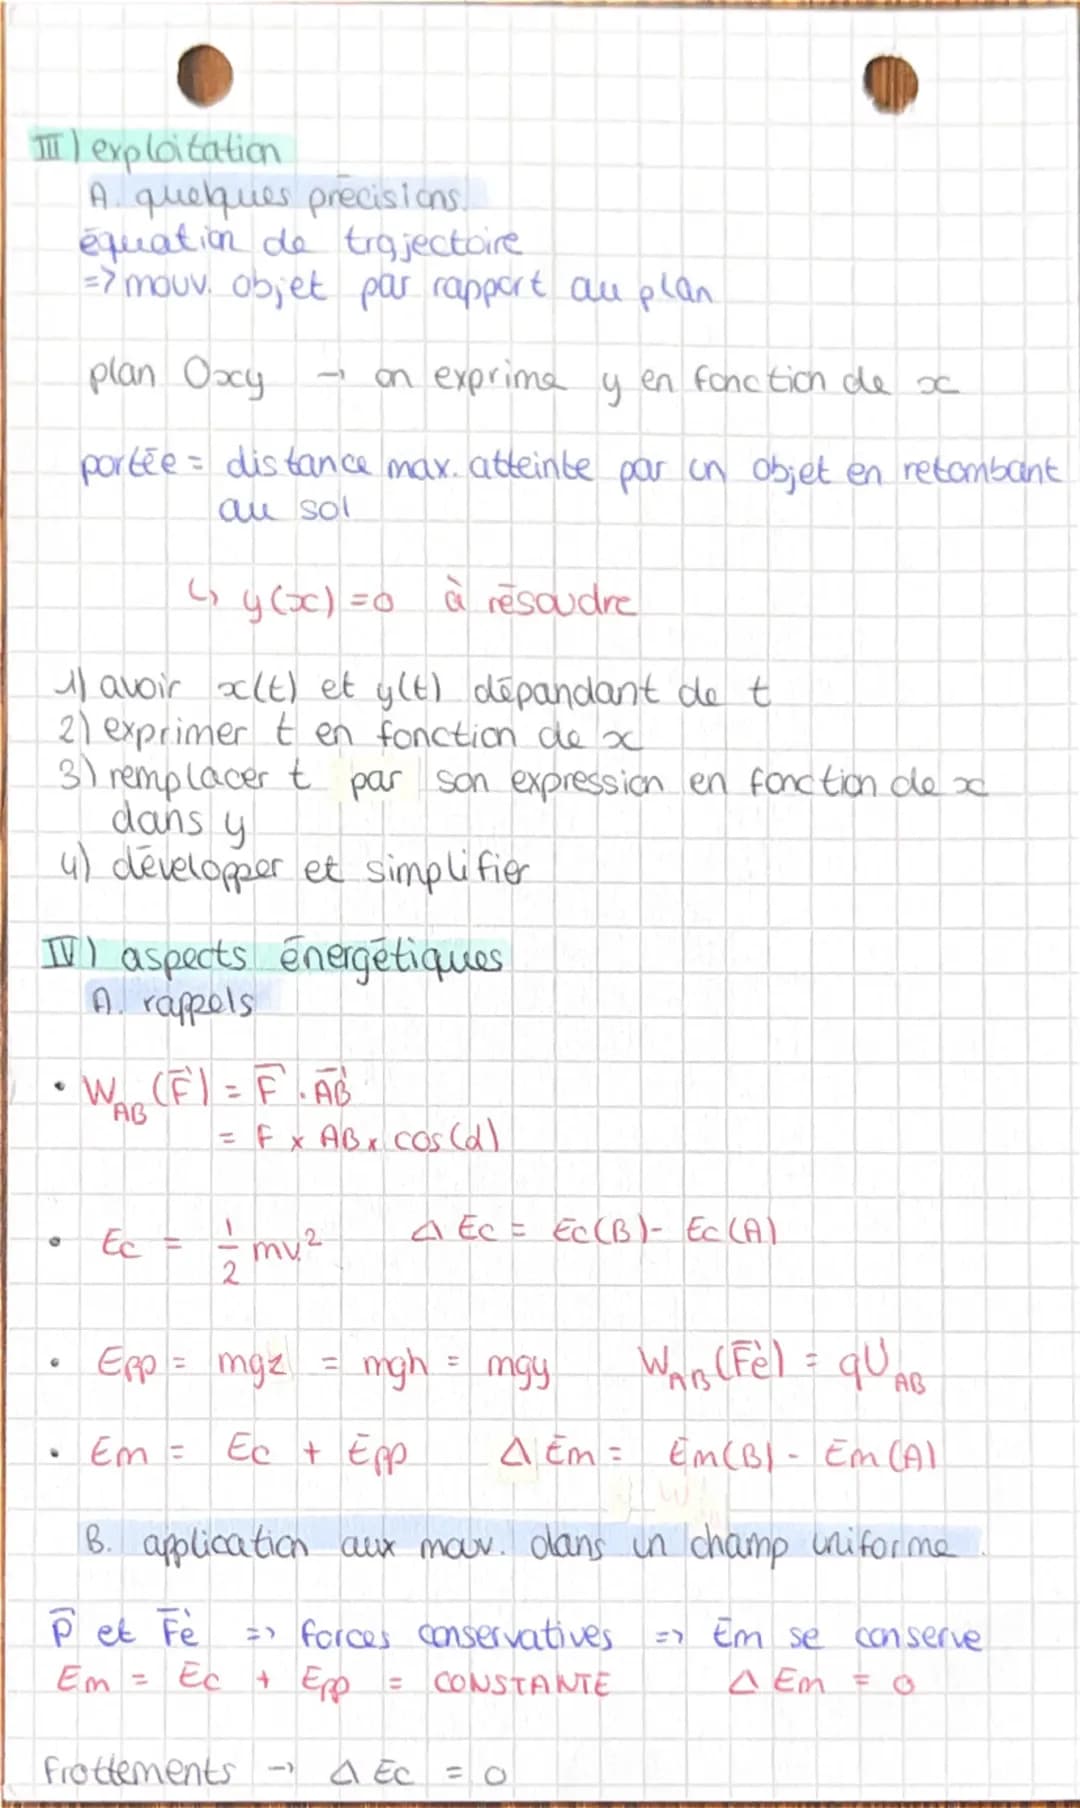 III) exploitation
A. quelques précisions.
équation de trajectoire
=> mouv. objet par rapport au plan
plan Oxy → on exprime y en fonction de x
portée = distance max. atteinte par un objet en retombant
au sol
↳ y(x) = 0 à résoudre
1) avoir x(t) et y(t) dépandant de t
2) exprimer t en fonction de x
3) remplacer t par son expression en fonction de x
dans y
4) développer et simplifier
IV) aspects énergétiques
A. rappels
• W_AB (F⃗) = F⃗ . AB⃗
= F x AB x cos(α)
• Ec = 1/2 mv² Δ Ec = Ec(B) - Ec(A)
• Epp = mgz = mgh = mgy W_AB (Fè) = qU_AB
• Em = Ec + Epp Δ Em = Em(B) - Em(A)
B. application aux mouv. dans un champ uniforme.
P⃗ et Fè => forces conservatives => Em se conserve
Em = Ec + Epp = CONSTANTE Δ Em = 0
frottements → Δ Ec = 0